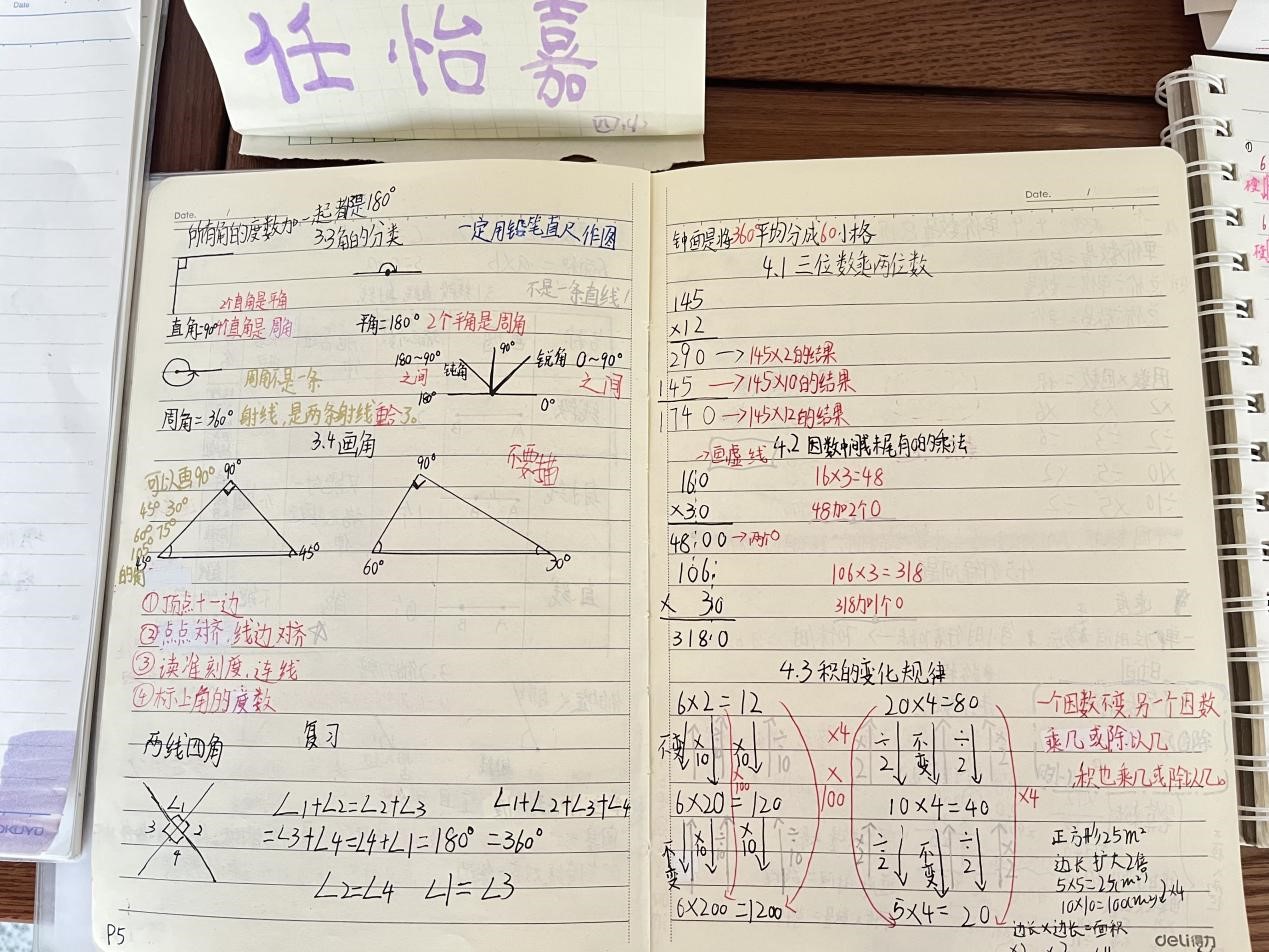 任怡嘉
四.4
Date
Date. /
所有角的度数加一起都是180°
3.3角的分类
一定用铅笔直尺作图
2个直角是平角
不是一条直线!
直角=90°4个直角是周角
平角=180° 2个平角是周角
周角不是一条
180~90°
之间
钝角
90°
锐角 0~90°
之间
180°
0°
周角=360° 射线,是两条射线重合了。
3.4画角
可以画90°
45° 30°
60° 75°
105°
的角
90°
45°
45°
90°
不要描
60°
30°
①顶点十一边
②点点对齐,线边对齐
③读准刻度,连线
④标上角的度数
两线四角
复习
∠1
3
2
4
∠1+∠2=∠2+∠3
=∠3+∠4=∠4+∠1=180°
∠1+∠2+∠3+∠4
=360°
∠2=∠4 ∠1=∠3
P5
KOKUYO
Date. /
钟面是将360°平均分成60小格
4.1三位数乘两位数
145
×12
290→145×2的结果
145→145×10的结果
1740→145×12的结果
→画虚线
4.2因数中间或末尾有0的乘法
160
×30
4800→两个0
16×3=48
48加2个0
106
× 30
3180
106×3=318
318加1个0
4.3积的变化规律
6×2=12
不变
×10
×10
×100
×100
6×20=120
不变
×10
×10
÷10
6×200=1200
20×4=80
×4
÷2
不变
÷2
10×4=40
÷2
不变
÷2
×4
5×4=20
一个因数不变,另一个因数
乘几或除以几
积也乘几或除以几。
正方形25m²
边长扩大2倍
5×5=25(m²)
10×10=100(m²)
×4
边长×边长=面积
deli得力